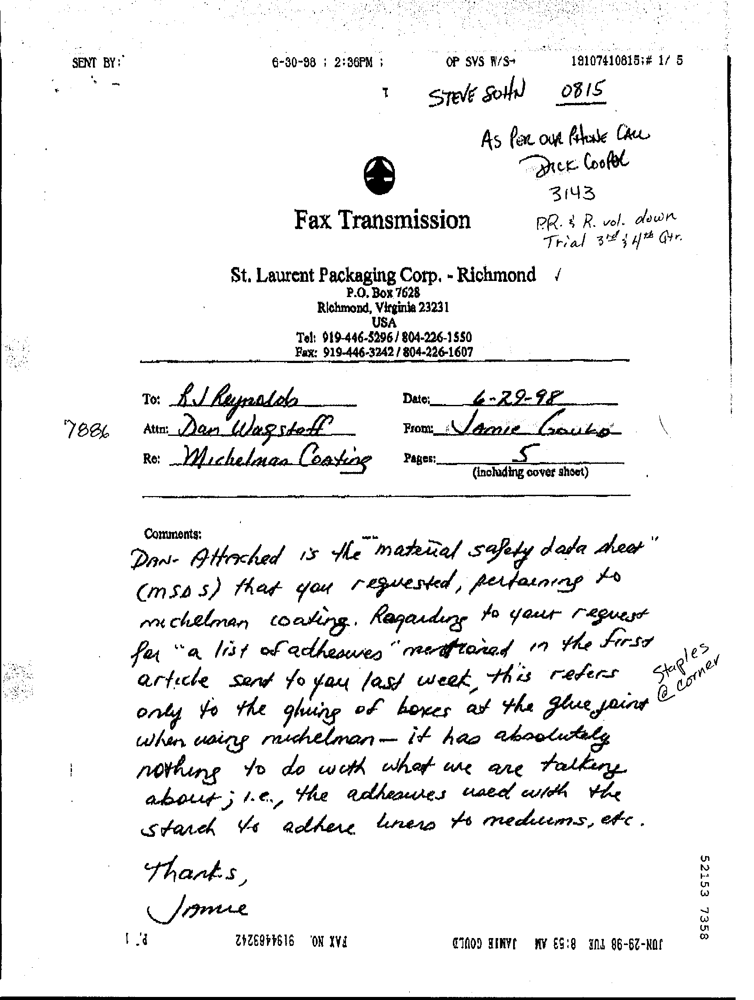 SENT BY: 6-30-98 ; 2:36PM ; OP SVS W/S→ 19107410815;# 1/ 5
STEVE SOHN 0815
AS PER OUR PHONE CALL
DICK COOPER
3143
P.R. & R. vol. down
Trial 3rd & 4th Qtr.
Fax Transmission
St. Laurent Packaging Corp. - Richmond ✓
P.O. Box 7628
Richmond, Virginia 23231
USA
Tel: 919-446-5296 / 804-226-1550
Fax: 919-446-3242 / 804-226-1607
To: RJ Reynolds Date: 6-29-98
7886 Attn: Dan Wagstaff From: Jamie Gould
Re: Michelman Coating Pages: 5
(including cover sheet)
Comments:
DAN- Attached is the "material safety data sheet"
(MSDS) that you requested, pertaining to
michelman coating. Regarding to your request
for "a list of adhesives" mentioned in the first
article sent to you last week, this refers
only to the gluing of boxes at the glue joint
Staples
@ corner
when using michelman - it has absolutely
nothing to do with what we are talking
about; i.e., the adhesives used with the
starch to adhere liners to mediums, etc.
Thanks,
Jamie
52153 7358
JUN-29-98 TUE 8:53 AM JAMIE GOULD FAX NO. 9194463242 P. 1